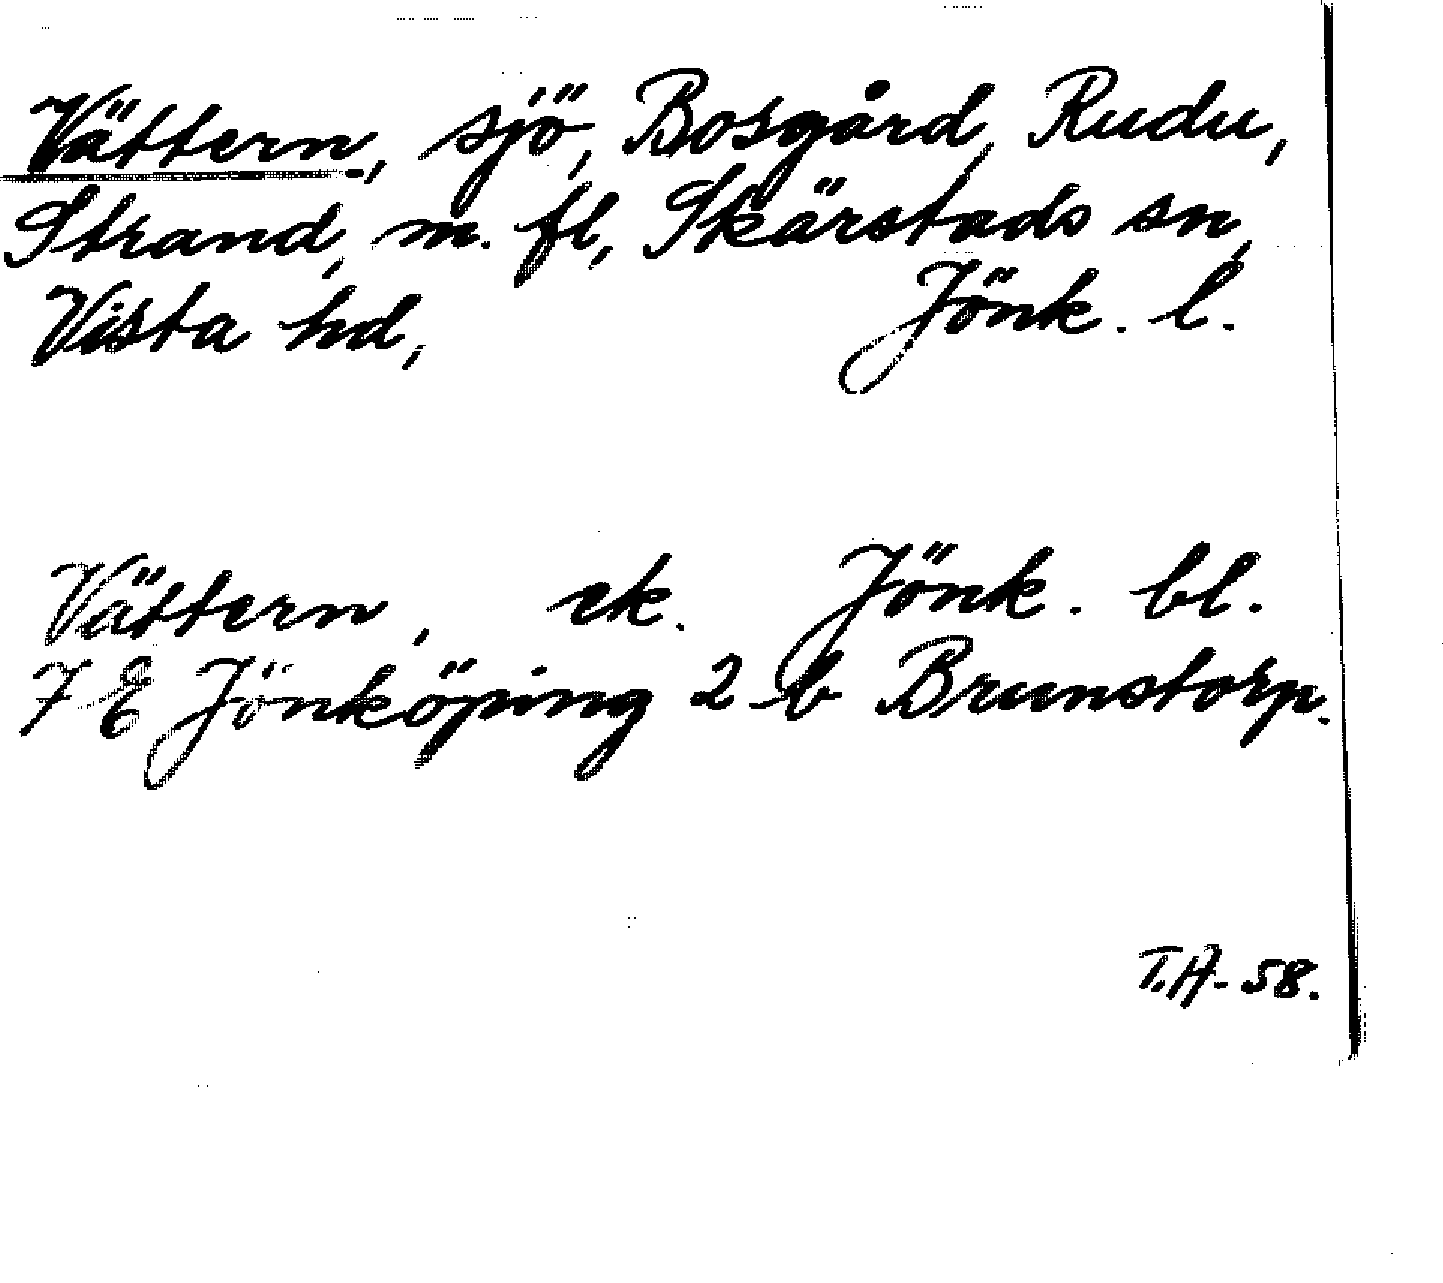 Vättern, sjö, Bosgård, Rudu,
Strand, m. fl, Skärstads sn,
Vista hd, Jönk. l.
Vättern, ek. Jönk. bl.
7 E Jönköping 2 b Brunstorp.
T.A-58.